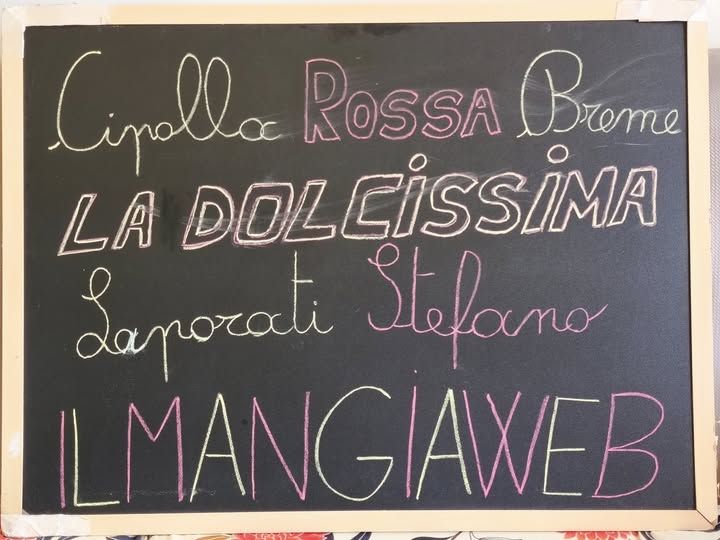 Cipolla ROSSA Breme
LA DOLCiSSiMA
Saporati Stefano
ILMANGiAWEB